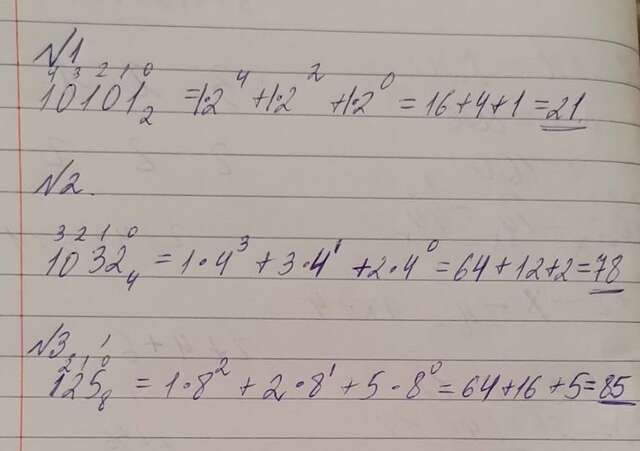 №1
4 3 2 1 0
10101₂ = 1·2⁴ + 1·2² + 1·2⁰ = 16 + 4 + 1 = 21.
№2.
3 2 1 0
1032₄ = 1·4³ + 3·4¹ + 2·4⁰ = 64 + 12 + 2 = 78
№3.
2 1 0
125₈ = 1·8² + 2·8¹ + 5·8⁰ = 64 + 16 + 5 = 85